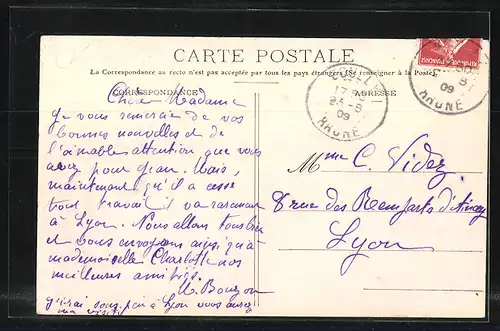 CARTE POSTALE
La Correspondance au recto n'est pas acceptée par tous les pays étrangers (Se renseigner à la Poste)
CORRESPONDANCE
ADRESSE
Chère Madame
Je vous remercie de vos
bonnes nouvelles et de
l'aimable attention que vous
avez pour Jean. Mais,
maintenant qu'il a cessé
tout travail il va rarement
à Lyon. Nous allons tous bien
et vous envoyons ainsi qu'à
mademoiselle Charlotte nos
meilleures amitiés.
M. Bouzon
J'irai sous peu à Lyon vous aurez
ma visite
17
23-8
09
RHONE
09
RHONE
Mme C. Videz
8 rue des Remparts d'Ainay
Lyon